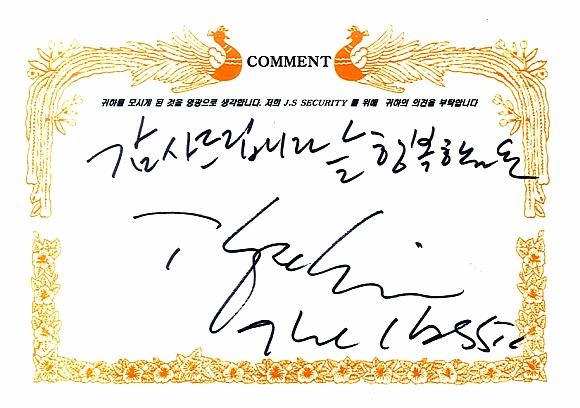 COMMENT
귀하를 모시게 된 것을 영광으로 생각합니다. 저희 J.S SECURITY 를 위해 귀하의 의견을 부탁합니다
감사드립니다 늘 행복하는
The Classic